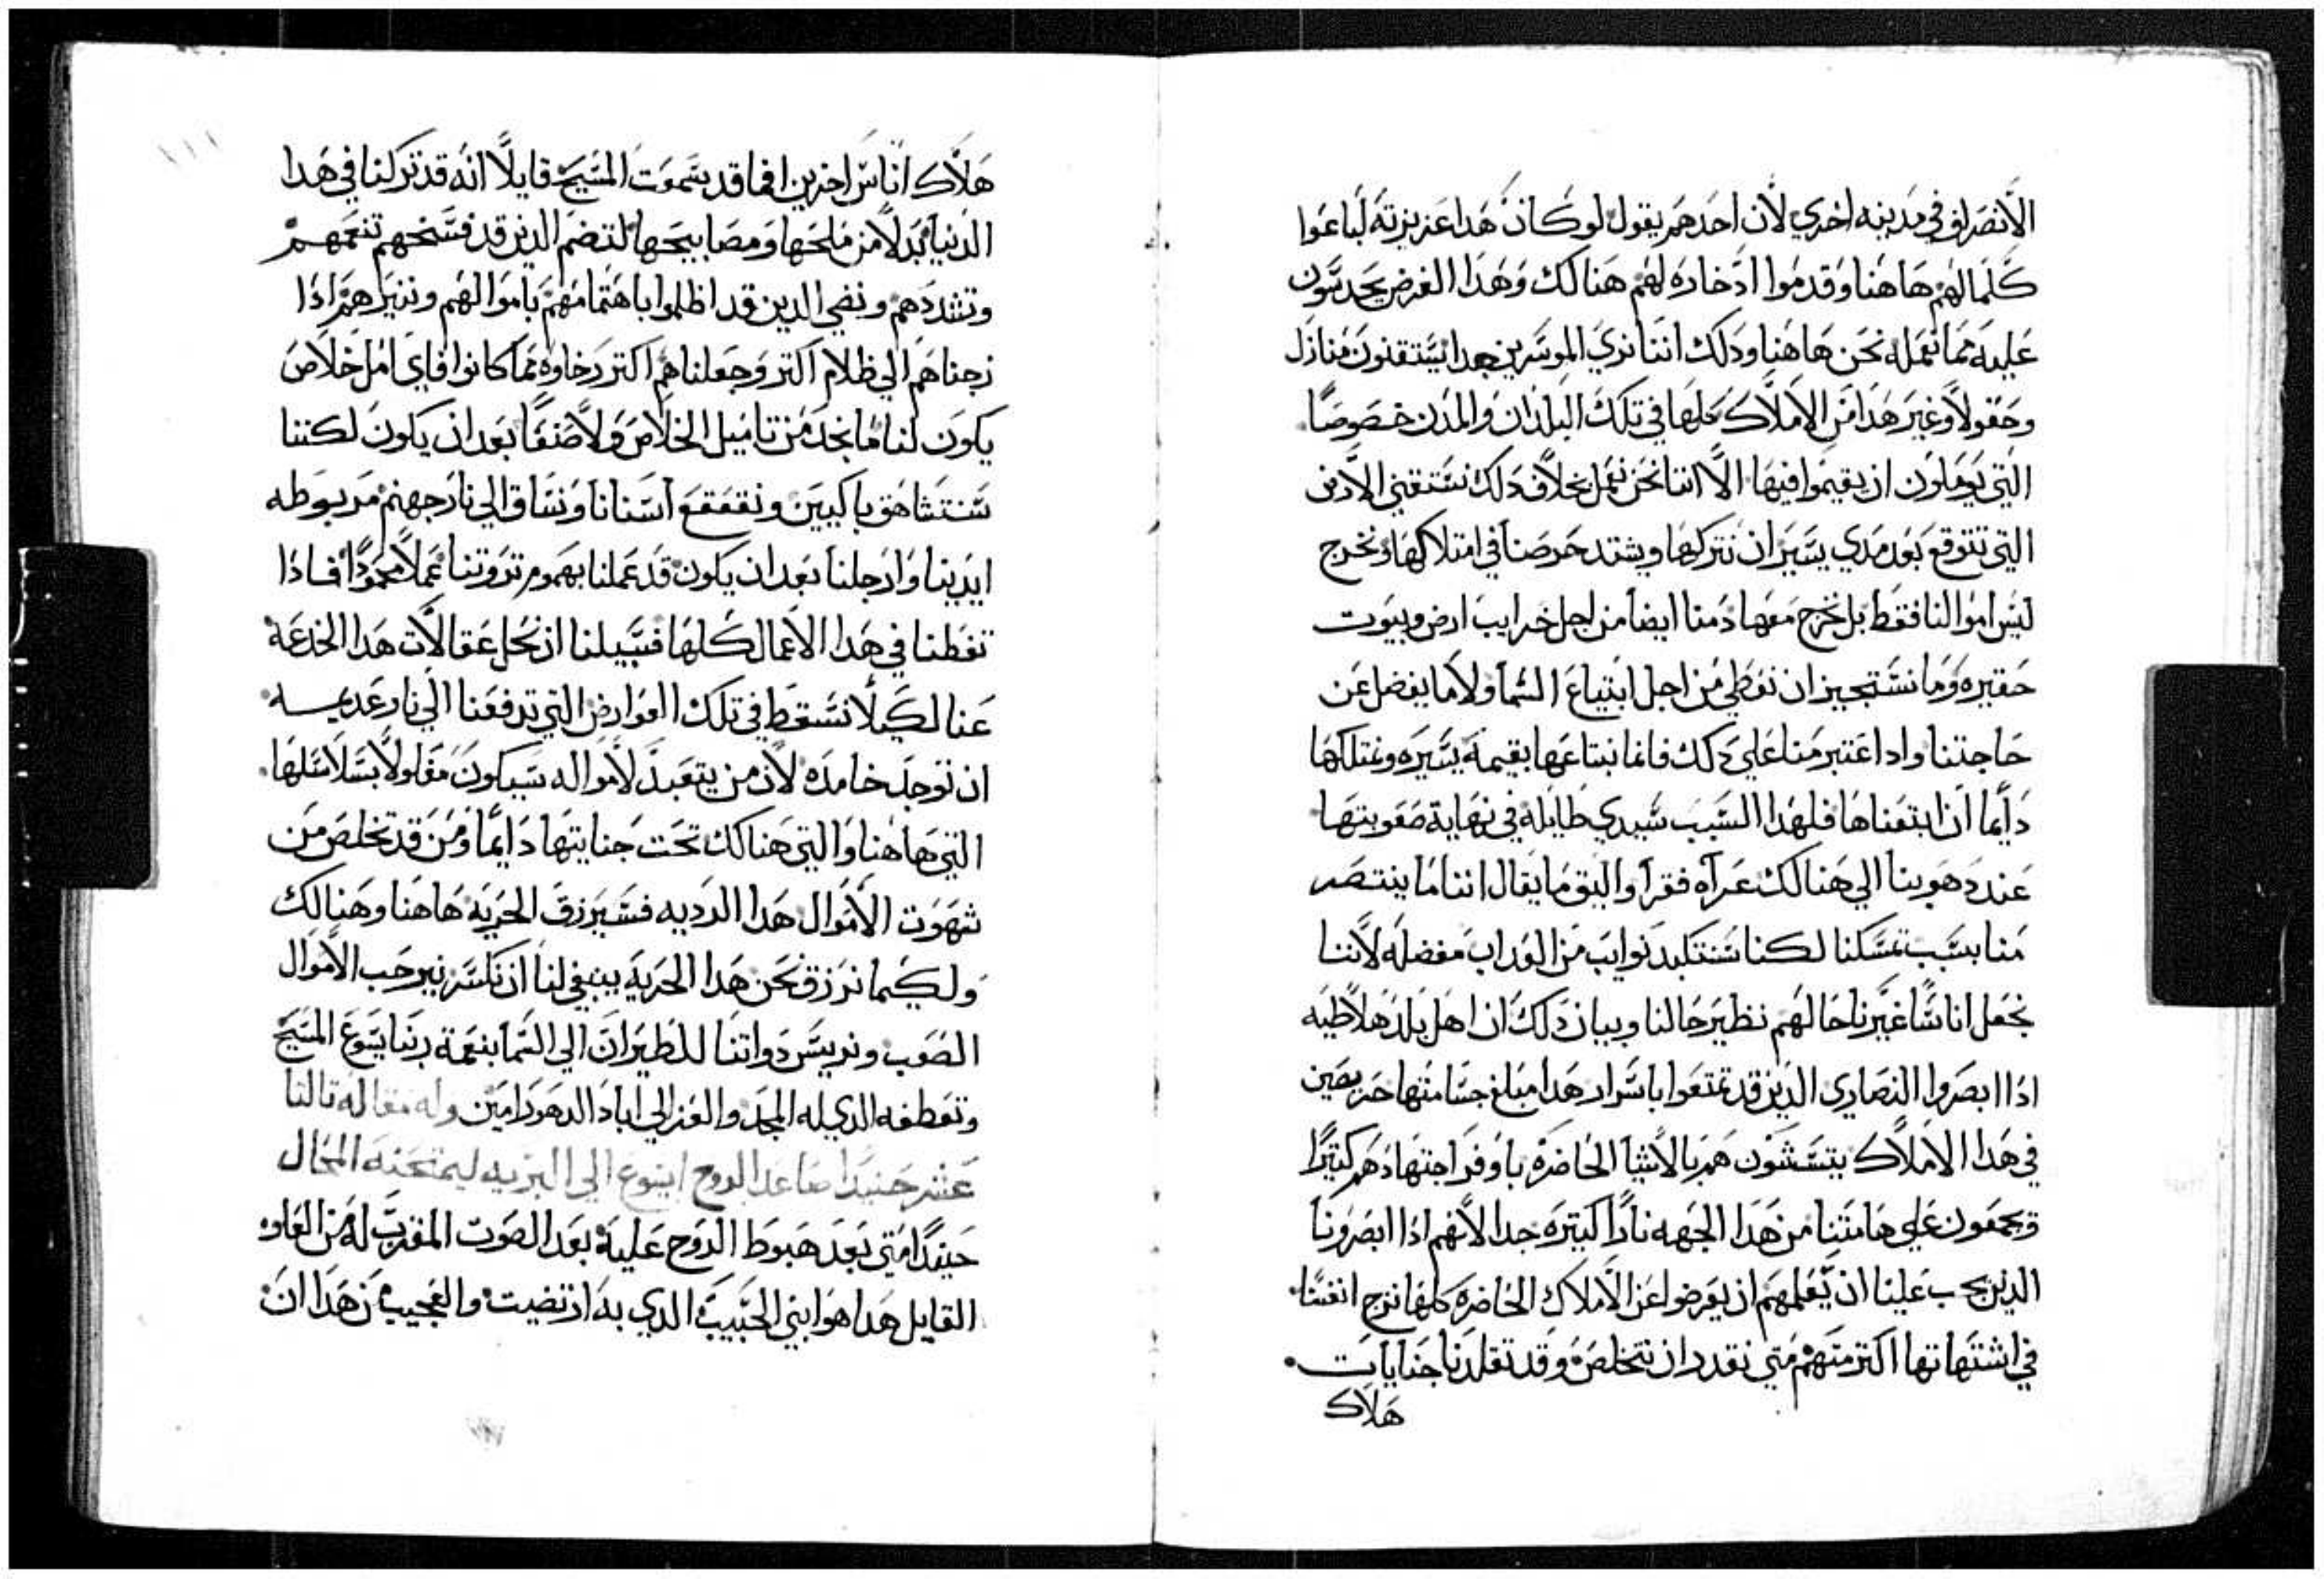 الانصراف في مدينه اخري لان احدهم يقول لو كان هدا عزيزته لباعوا
كلما لهم هاهنا وقدموا ادخاره لهم هنالك وهدا الغرض يحدتون
عليه مما نعمله نحن هاهنا ودلك اننا نري الموسرين جدا يستقنون منازل
وحقولا وغير هدا من الاملاك كلها في تلك البلدان والمدن خصوصا
التي يوملون ان يقيموا فيها الا اننا نحن نعمل بخلاف دلك نستقني الارض
التي نتوقع بعد مدي يسير ان نتركها ويشتد حرصنا في امتلاكها ونخرج
ليس اموالنا فقط بل نخرج معها دمنا ايضا من اجل خرايب ارض وبيوت
حقيره وما نستجيز ان نعطي من اجل ابتياع السما ولا ما يفضل عن
حاجتنا وادا اعتبر منا علي دلك فانما نبتاعها بقيمة يسيره ونمتلكها
دايما ان ابتعناها فلهدا السبب سيدي طايله في نهاية صعوبتها
عند دهوبنا الي هنالك عراه فقرا واليق ما يقال اننا ما ينتصر
منا بسبب تمسكنا لكنا سنتكبد نوايب من العداب مفضله لاننا
نجعل اناسا غيرنا حالهم نظير حالنا وبيان دلك ان اهل بلد هلاطيه
ادا ابصروا النصاري الدين قد تمتعوا باسرار هدا مبلغ جسامتها حريصين
في هدا الاملاك يتستنون هم بالاشيا الحاضره باوفر اجتهادهم كتيرا
فيجمعون علي هامتنا من هدا الجهه نارا كتيره جدا لانهم ادا ابصرونا
الدين يجب علينا ان نعلمهم ان يعرضوا عن الاملاك الحاضره كلها نزج انفسنا
في اشتهاتها اكتر منهم متي نقدر ان نتخلص وقد تقلدنا جنايات
هلاك
هلاك اناس اخرين افما قد يتموت المسيح قايلا انه قد تركنا في هدا
الدنيا بدلا من ملحها ومصابيحها لنضم الدين قد فسحهم تنعمهم
ونشددهم ونضي الدين قد اظلموا باهتمامهم باموالهم وننيرهم ادا
زجناهم الي ظلام اكتر وجعلناهم اكتر رخاوه مما كانوا فاي امل خلاص
يكون لنا ما نجد من تاميل الخلاص ولا صنفا بعد ان يكون لكننا
سنتشاهق باكيين ونقعقع اسنانا ونساق الي نار جهنم مربوطه
ايدينا وارجلنا بعد ان يكون قد عملنا بهموم تروتنا عملا محمودا فادا
تفطنا في هدا الاعمال كلها فسبيلنا ان نحل عقالات هدا الخدعة
عنا لكيلا نسقط في تلك العوارض التي تدفعنا الي نار عديمه
ان توجد خامده لان من يتعبد لامواله سيكون مغلولا بسلاسلها
التي هاهنا والتي هنالك تحت جنايتها دايما ومن قد تخلص من
شهوت الاموال هدا الرديه فسيرزق الحرية هاهنا وهنالك
ولكيما نرزق نحن هدا الحرية ينبغي لنا ان نكسر نير حب الاموال
الصعب ونريش دواتنا للطيران الي السما بنعمة ربنا يسوع المسيح
وتعطفه الدي له المجد والعز الي اباد الدهور امين وله مقاله تالتا
عشر حنيدا صاعد الروح ايسوع الي البريه ليمتحنه المحال
حينيدا متي بعد هبوط الروح علية بعد الصوت المقترب له من العلو
القايل هدا هو ابني الحبيب الدي به ارتضيت والعجيب من هدا ان
١١١